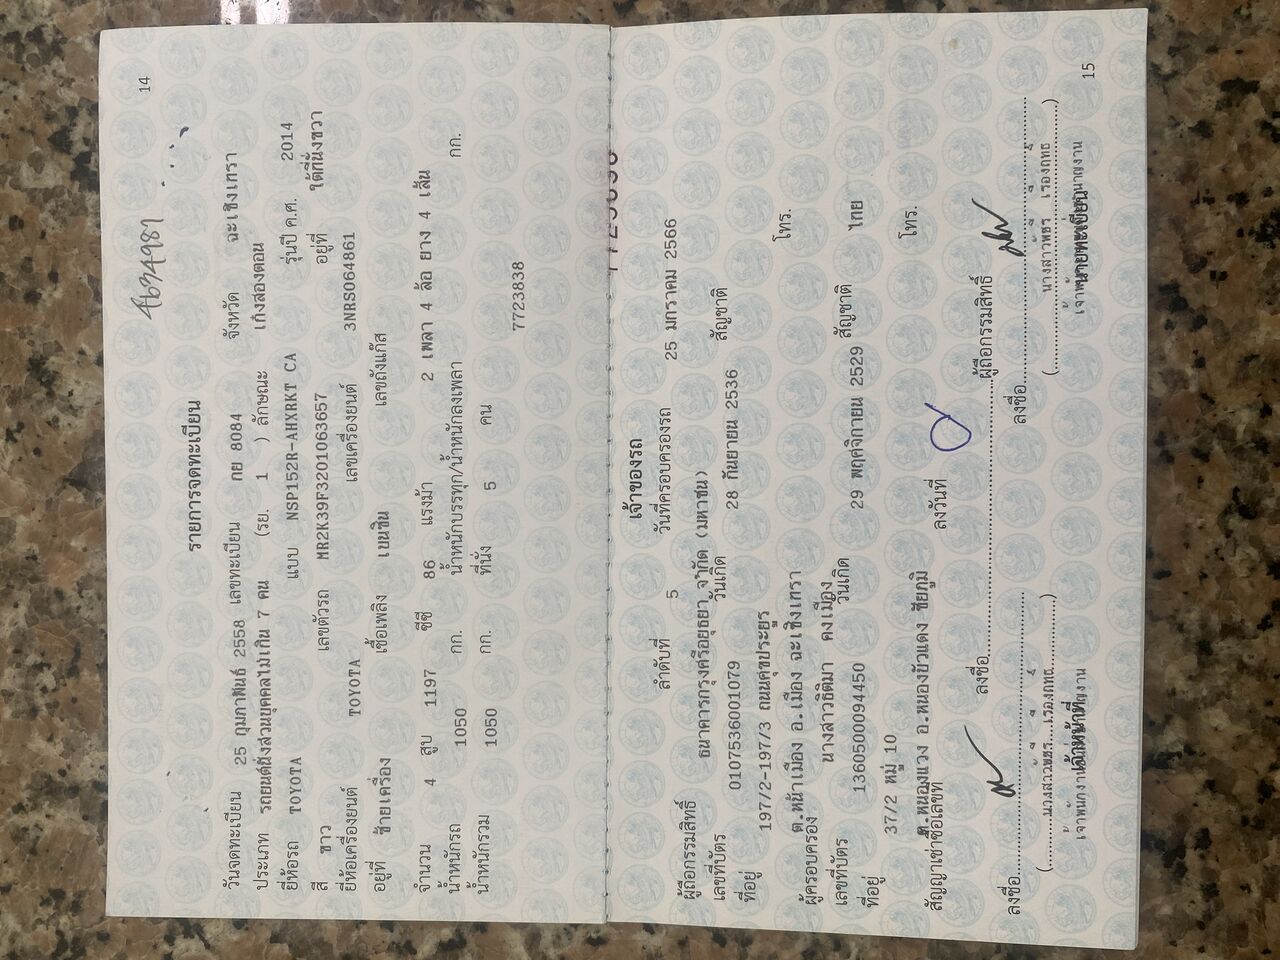 14
4634987
รายการจดทะเบียน
วันจดทะเบียน 25 กุมภาพันธ์ 2558 เลขทะเบียน กย 8084 จังหวัด ฉะเชิงเทรา
ประเภท รถยนต์นั่งส่วนบุคคลไม่เกิน 7 คน (รย. 1 ) ลักษณะ เก๋งสองตอน
ยี่ห้อรถ TOYOTA แบบ NSP152R-AHXRKT CA รุ่นปี ค.ศ. 2014
สี ขาว เลขตัวรถ MR2K39F3201063657 อยู่ที่ ใต้ที่นั่งขวา
ยี่ห้อเครื่องยนต์ TOYOTA เลขเครื่องยนต์ 3NRS064861
อยู่ที่ ซ้ายเครื่อง เชื้อเพลิง เบนซิน เลขถังแก๊ส
จำนวน 4 สูบ 1197 ซีซี 86 แรงม้า 2 เพลา 4 ล้อ ยาง 4 เส้น
น้ำหนักรถ 1050 กก. น้ำหนักบรรทุก/น้ำหนักลงเพลา กก.
น้ำหนักรวม 1050 กก. ที่นั่ง 5 คน
7723838
เจ้าของรถ
ลำดับที่ 5 วันที่ครอบครองรถ 25 มกราคม 2566
ผู้ถือกรรมสิทธิ์ ธนาคารกรุงศรีอยุธยา จำกัด (มหาชน)
เลขที่บัตร 0107536001079 วันเกิด 28 กันยายน 2536 สัญชาติ
ที่อยู่ 197/2-197/3 ถนนศุขประยูร
ต.หน้าเมือง อ.เมือง ฉะเชิงเทรา โทร.
ผู้ครอบครอง นางสาวธิติมา คงเมือง
เลขที่บัตร 1360500094450 วันเกิด 29 พฤศจิกายน 2529 สัญชาติ ไทย
ที่อยู่ 37/2 หมู่ 10
ต.หนองแวง อ.หนองบัวแดง ชัยภูมิ โทร.
สัญญาเช่าซื้อเลขที่ ลงวันที่
ลงชื่อ ผู้ถือกรรมสิทธิ์
ลงชื่อ ลงชื่อ
(นางสาวพชร เรืองฤทธิ์) (นางสาวพชร เรืองฤทธิ์)
เจ้าหน้าที่ นายทะเบียน
15